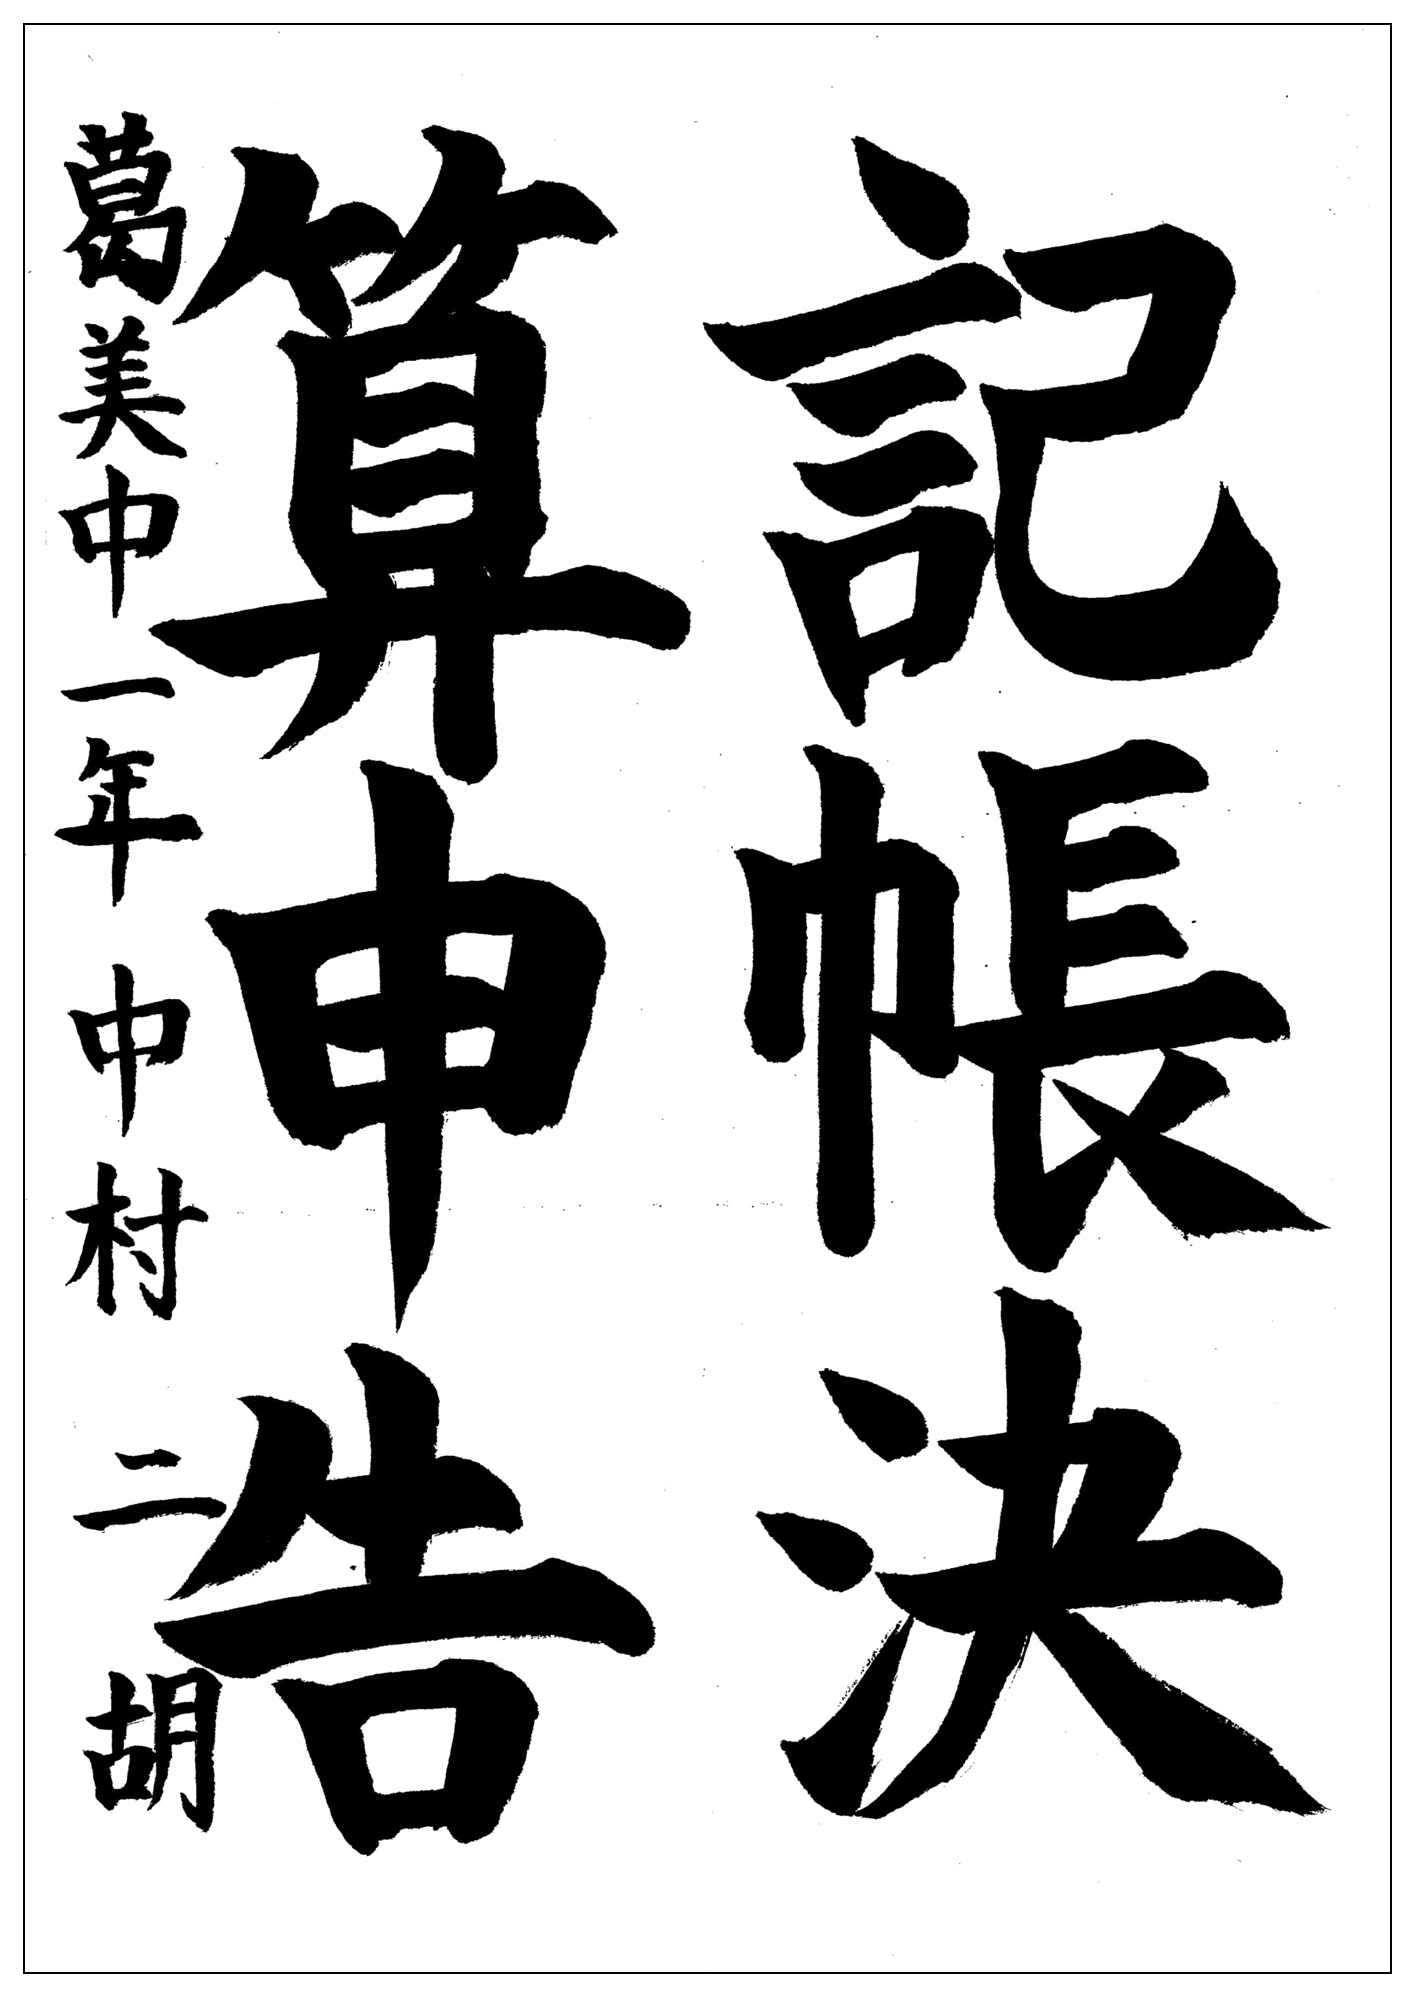 記帳決
算申告
葛美中 一年 中村 二胡